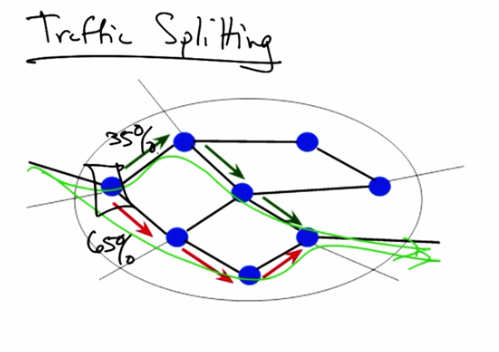 Traffic Splitting
35%
65%